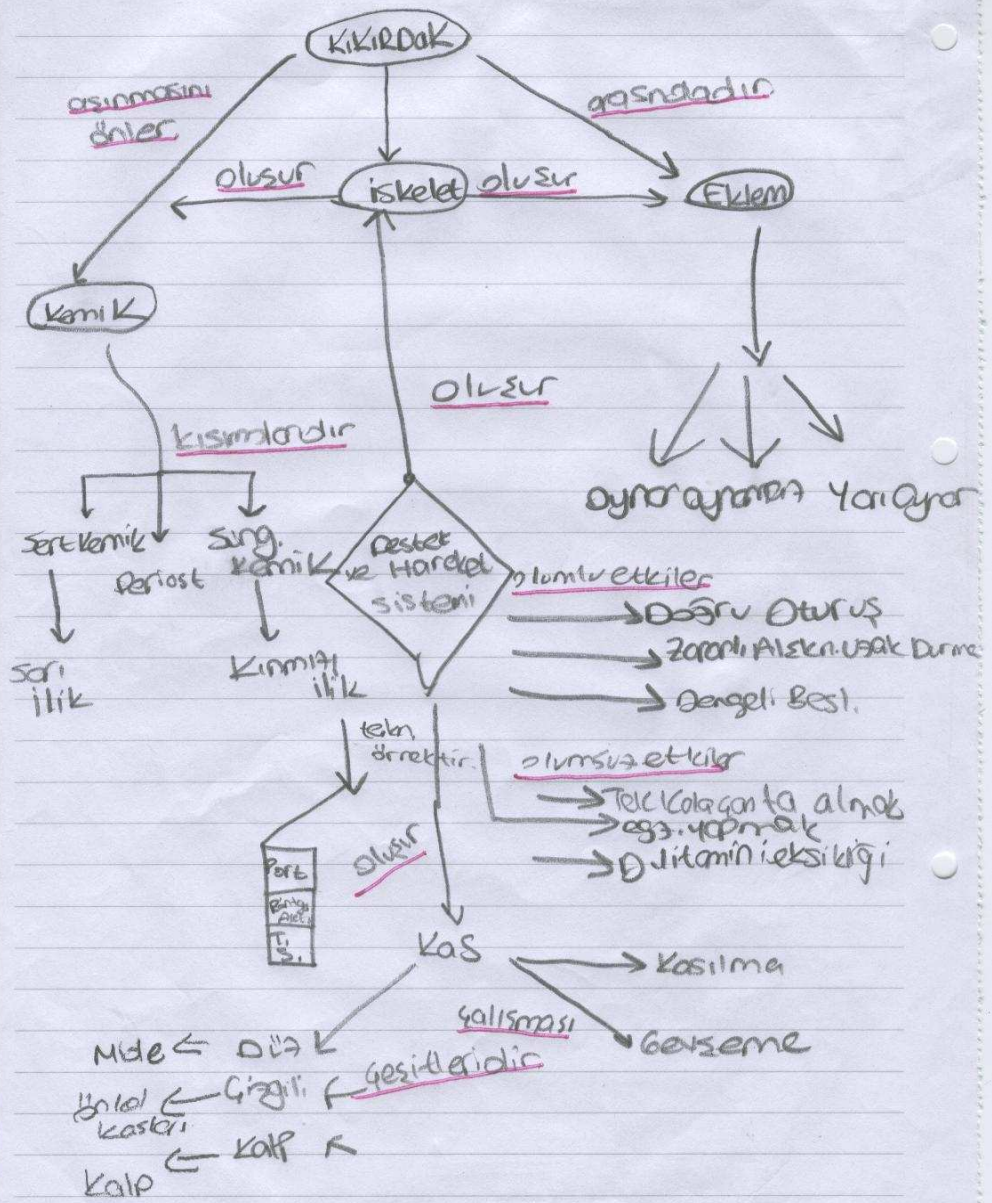 KıKıRDaK
aşınmasını
önler
arasndadır
oluşur
iskelet
oluşur
Eklem
KemiK
oluşur
kısımlarıdır
oynar oynamaz Yarı oynar
Sert kemik
Periost
Süng.
kemik
Destek
ve Hareket
sistemi
olumlu etkiler
Doğru Oturuş
Zararlı Alışkn. uzak Durma
Dengeli Besl.
Sarı
ilik
Kırımızı
ilik
tekn.
örnektir.
olumsuz etkiler
Tek kola çanta almak
egz. yapmak
D vitamini eksikliği
oluşur
Port
T.
S.
Kas
Kasılma
Gevşeme
çalışması
çeşitleridir
Düz
Mide
Çizgili
önkol
kasları
Kalp
Kalp